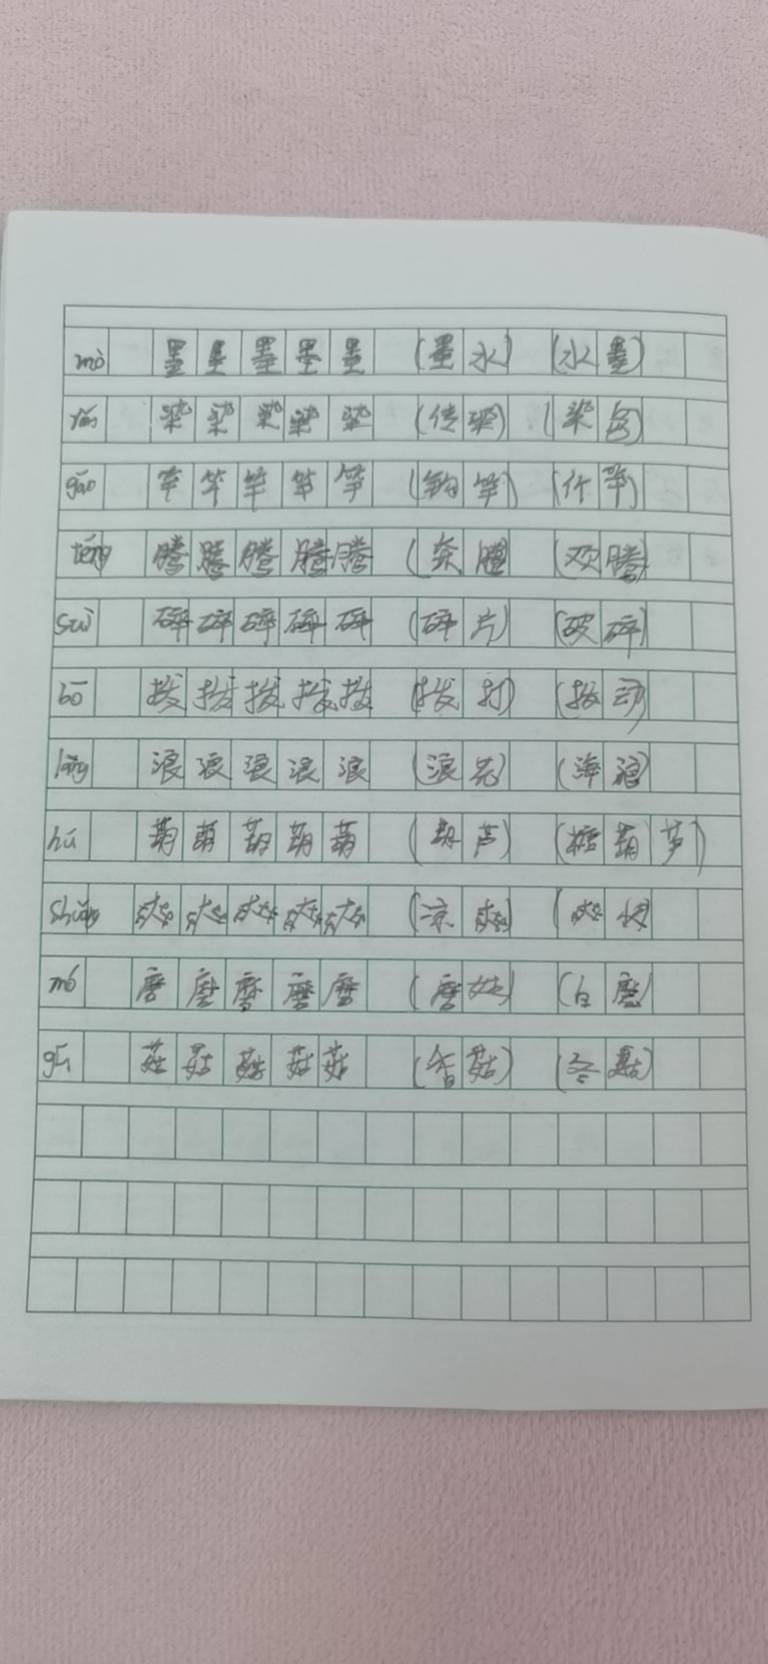 mò 墨 墨 墨 墨 墨 (墨水) (水墨)
rǎn 染 染 染 染 染 (传染) (染
gāo 竿 竿 竿 竿 竿 (钓竿) (竹竿)
téng 腾 腾 腾 腾 腾 (奔腾 (欢腾)
suì 碎 碎 碎 碎 碎 (碎片) (破碎)
bō 拨 拨 拨 拨 拨 (拨打) (拨动
làng 浪 浪 浪 浪 浪 (浪花) (海浪)
hú 葫 葫 葫 葫 葫 (葫芦) (糖葫芦)
shuǎng 爽 爽 爽 爽 爽 (凉爽) (爽快
mó 磨 磨 磨 磨 磨 (蘑菇)
gū 菇 菇 菇 菇 菇 (香菇) (冬菇)